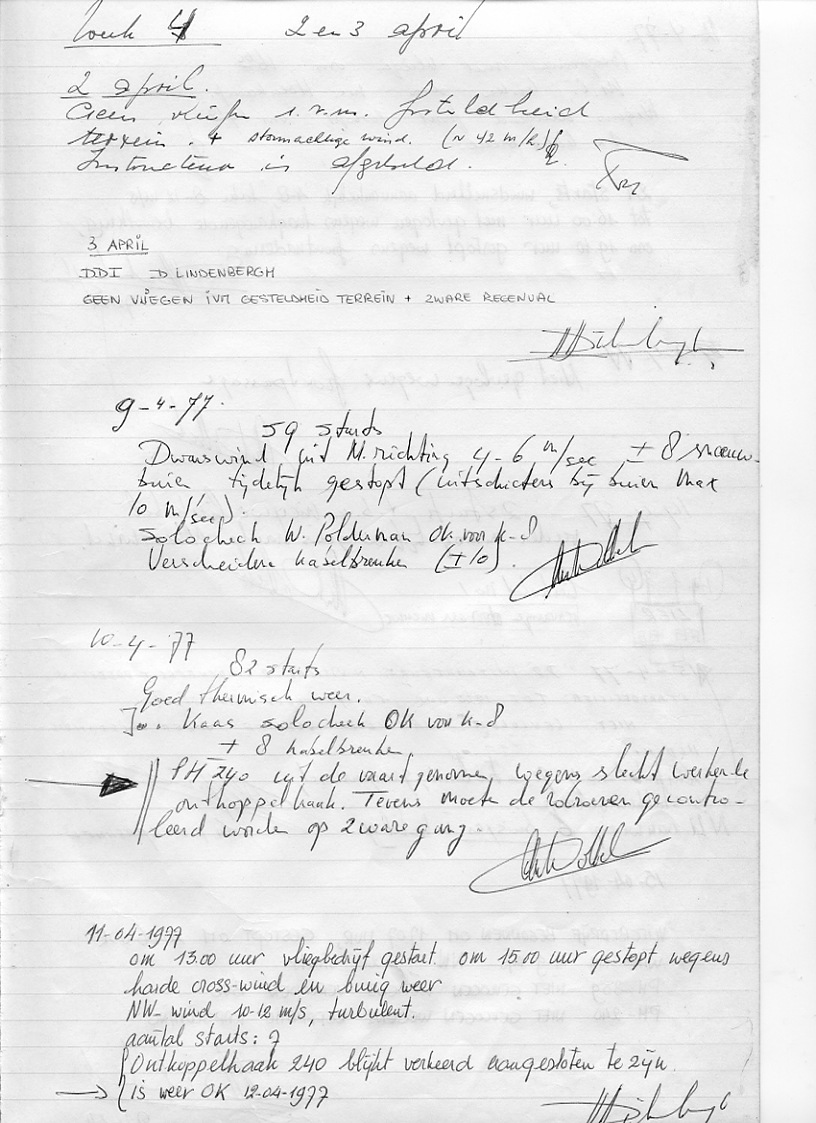 Week 4 2 en 3 april
2 april.
Geen vliegen i.v.m. gesteldheid
terrein. + stormachtige wind. (~ 42 m/h.)
Instructeur is afgebeld.
3 APRIL
DDI D LINDENBERGH
GEEN VLIEGEN IVM GESTELDHEID TERREIN + ZWARE REGENVAL
9-4-77.
59 starts
Dwarswind uit N.richting 4-6 m/sec ± 8 sneeuw-
buien tijdelijk gestopt (uitschieters bij buien max
10 m/sec).
Solocheck W. Polderman ok voor K-8
Verscheidene kabelbreuken (±10).
10-4-77
82 starts
Goed thermisch weer.
Kaas solocheck OK voor K-8
± 8 kabelbreuken.
PH 240 uit de vaart genomen, wegens slecht werkende
onthoppelhaak. Tevens moeten de rolroeren gecontro-
leerd worden op zware gang.
11-04-1977
om 13.00 uur vliegbedrijf gestart. om 15.00 uur gestopt wegens
harde cross-wind en buiig weer
NW-wind 10-12 m/s, turbulent.
aantal starts: 7
Onthoppelhaak 240 blijkt verkeerd aangesloten te zijn.
is weer OK 12-04-1977